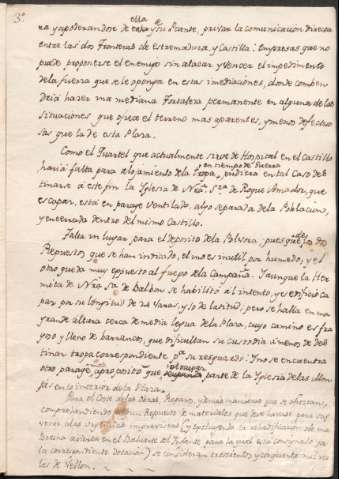 3.º
ella
na y apoderandose de su Puente, privar la comunicacion directa
entre las dos Fronteras de Estremadura, y Castilla: empresas que no
puede proponerse el enemigo sin atacar y vencer el impedimento
de la fuerza que se le oponga en estas imediaciones, donde comben
drá hacer una mediana Fortaleza permanente en alguna de las
situaciones que ofrece el terreno mas aparentes, y menos defectuo
sas que la de esta Plaza.
Como el Quartel que actualmente sirve de Hospital en el Castillo
en tiempo de Guerra
haria falta para alojamiento de la Tropa, pudiera en tal caso des
tinarse á este fin la Iglesia de Nra. Sra. de Roque Amador, que
es capaz, está en parage ventilado, algo separada de la Poblacion,
y dentro del mismo Castillo.
Falta un lugar para el deposito de la Polvora, pues que de los dos
Repuestos que se han indicado, el uno es inutil por humedo, y el
otro muy expuesto al fuego de la Campaña. Y aunque la Her
mita de Nra. Sa. de habilitó al intento, y es edificio ca
paz por su longitud de 24 Varas, y 10 de latitud, pero se halla en una
grande altura cerca de media legua de la Plaza, cuyo camino es fra
goso y lleno de barrancos, que dificultan su custodia á menos de des
tinar tropa correspondiente pa. su resguardo: Y no se encuentra
otro parage aproposito que parte de la Yglesia de las Mon
jas en lo interior de la Plaza.
Para el Coste de las obras, Reparos, y demás maniobras que se ofrezcan,
comprehendiendo un Repuesto de materiales que debe hacerse para
varias obras y urgencias imprevistas (y excluyendo la rehabilitacion de una
en el Baluarte del Infante, para la qual está consignada ya
la correspondiente dotacion) se consideran trescientos y cinquenta mil rea
les de Vellon.